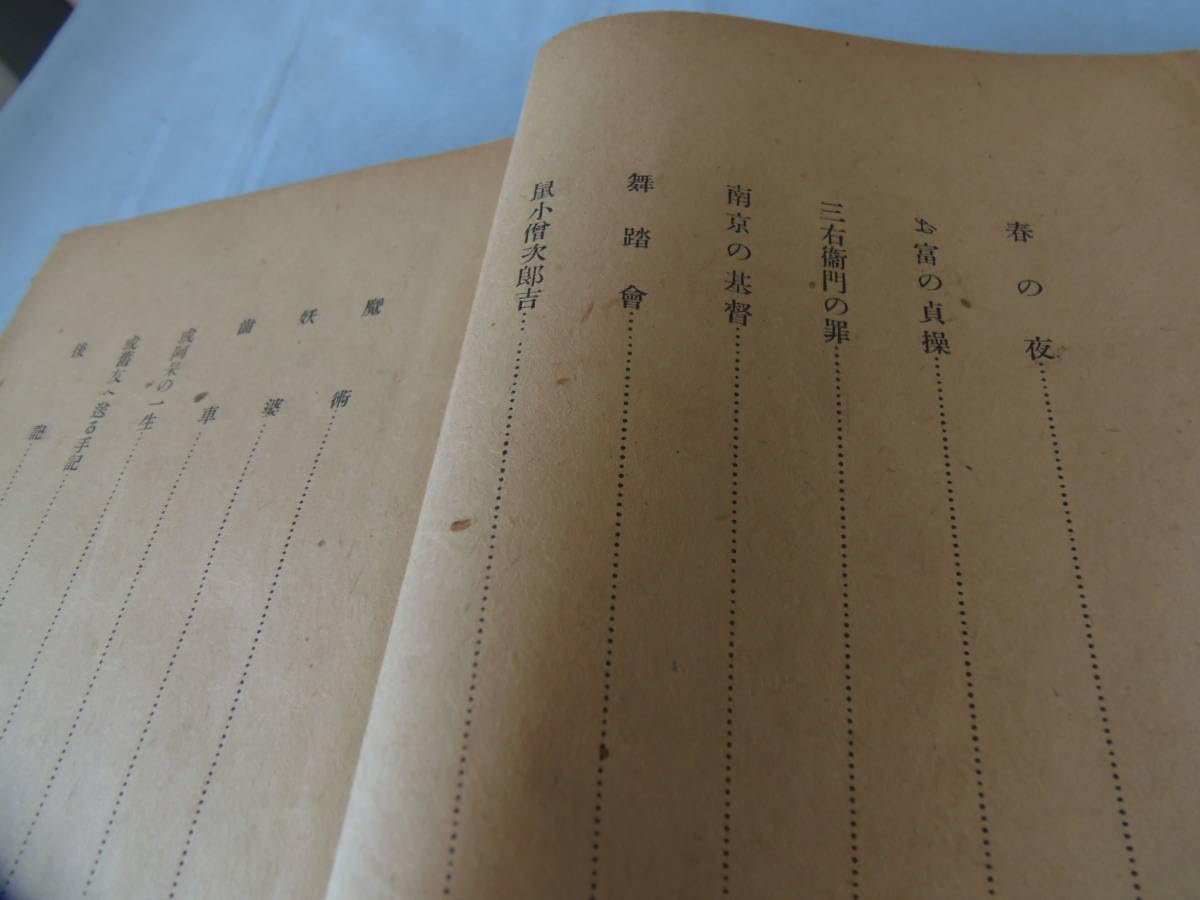 春の夜
お富の貞操
三右衞門の罪
南京の基督
舞踏會
鼠小僧次郎吉
魔術
妖婆
齒車
或阿呆の一生
或舊友へ送る手記
後記